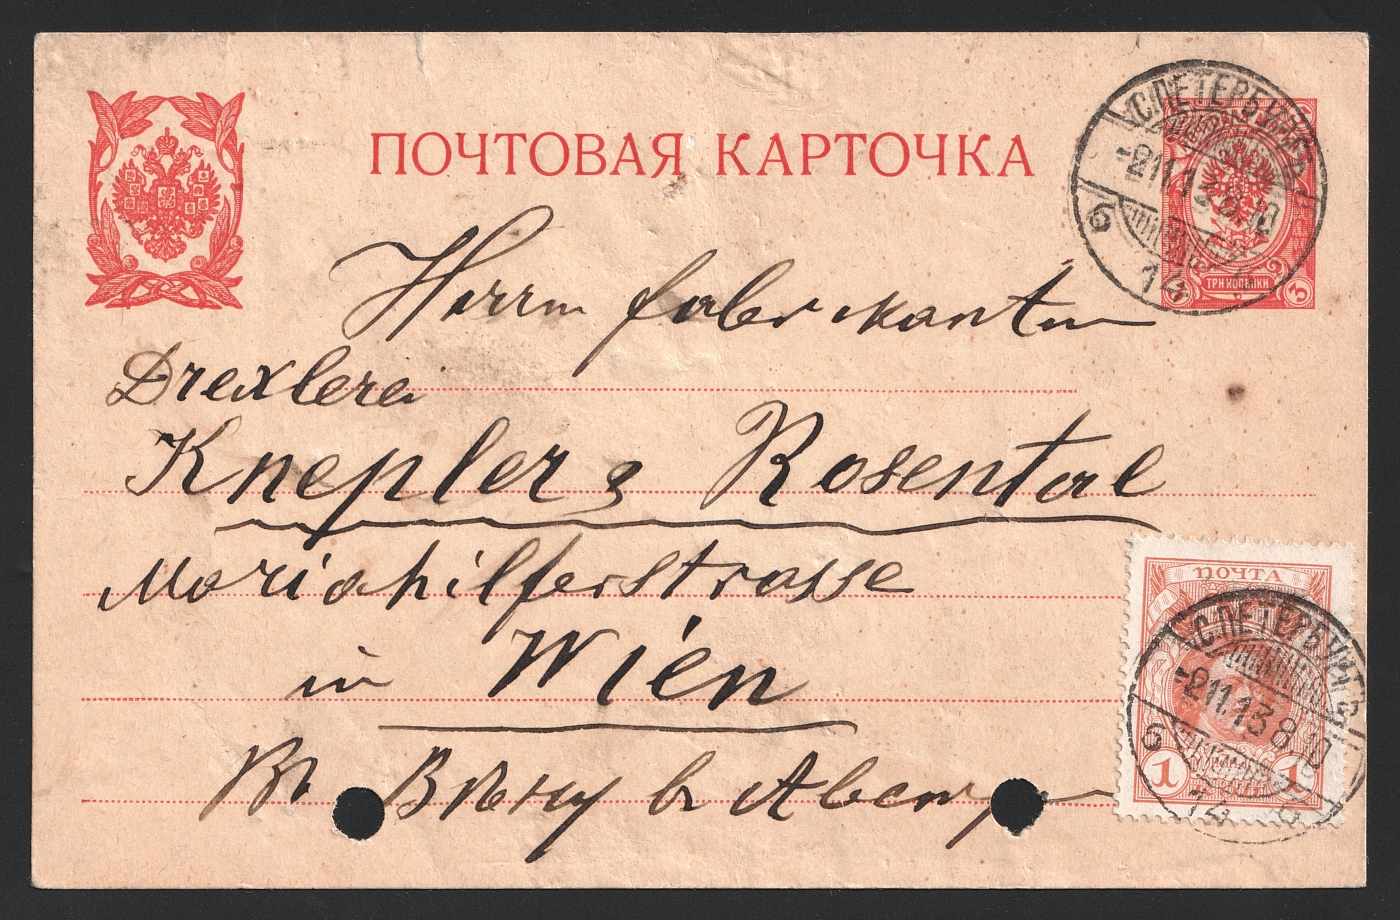 ПОЧТОВАЯ КАРТОЧКА
С.ПЕТЕРБУРГЪ
-2.11.13 8 10
6 14 6
3
ТРИ КОПѢЙКИ 3
Herrn fabrikanten
Drexlerei
Knepler & Rosental
Mariahilferstrasse
in Wien
Въ Вѣну въ
ПОЧТА
С.ПЕТЕРБУРГЪ
-2.11.13 8 10
6 14 6
1 1